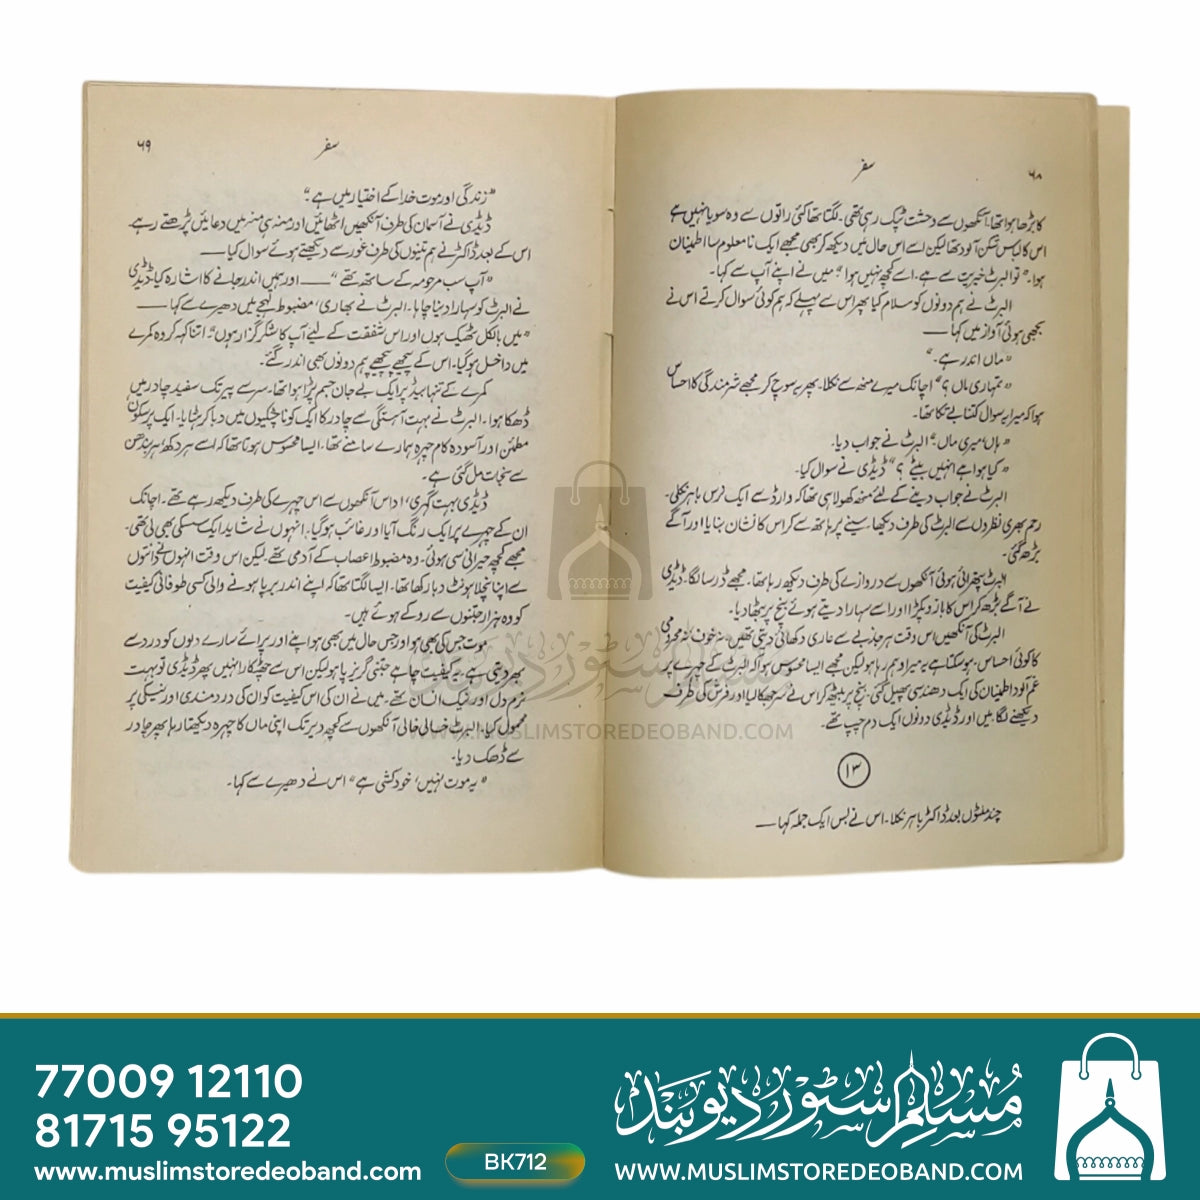 ۶۸
سفر
کا بڑھا ہوا تھا۔ آنکھوں سے دحشت ٹپک رہی تھی۔ لگتا تھا کئی راتوں سے وہ سویا نہیں ہے
اس کا لباس شکن آلود تھا لیکن اسے اس حال میں دیکھ کر بھی مجھے ایک نامعلوم سا اطمینان
ہوا۔ "تو البرٹ خیریت سے ہے۔ اسے کچھ نہیں ہوا" میں نے اپنے آپ سے کہا۔
البرٹ نے ہم دونوں کو سلام کیا پھر اس سے پہلے کہ ہم کوئی سوال کرتے اس نے
بجھی ہوئی آواز میں کہا —
"ماں اندر ہے۔"
"تمہاری ماں؟" اچانک میرے منھ سے نکلا۔ پھر یہ سوچ کر مجھے شرمندگی کا احساس
ہوا کہ میرا یہ سوال کتنا بے تکا تھا۔
"ہاں، میری ماں" البرٹ نے جواب دیا۔
"کیا ہوا ہے انہیں بیٹے؟" ڈیڈی نے سوال کیا۔
البرٹ نے جواب دینے کے لئے منھ کھولا ہی تھا کہ وارڈ سے ایک نرس باہر نکلی۔
رحم بھری نظروں سے البرٹ کی طرف دیکھا۔ سینے پر ہاتھ سے کراس کا نشان بنایا اور آگے
بڑھ گئی۔
البرٹ پتھرائی ہوئی آنکھوں سے دروازے کی طرف دیکھ رہا تھا۔ مجھے ڈر سا لگا۔ ڈیڈی
نے آگے بڑھ کر اس کا بازو پکڑا اور اسے سہارا دیتے ہوئے بنچ پر بٹھا دیا۔
البرٹ کی آنکھیں اس وقت ہر جذبے سے عاری دکھائی دیتی تھیں۔ نہ خوف نہ محرومی
کا کوئی احساس۔ ہو سکتا ہے یہ میرا وہم رہا ہو لیکن مجھے ایسا محسوس ہوا کہ البرٹ کے چہرے پر
غم آلود اطمینان کی ایک دھند سی پھیل گئی۔ بنچ پر بیٹھ کر اس نے سر جھکا لیا اور فرش کی طرف
دیکھنے لگا۔ میں اور ڈیڈی دونوں ایک دم چپ تھے۔
۱۳
چند منٹوں بعد ڈاکٹر باہر نکلا۔ اس نے بس ایک جملہ کہا —
سفر
۶۹
"زندگی اور موت خدا کے اختیار میں ہے۔"
ڈیڈی نے آسمان کی طرف آنکھیں اٹھائیں اور منہ ہی منہ میں دعائیں پڑھتے رہے۔
اس کے بعد ڈاکٹر نے ہم تینوں کی طرف غور سے دیکھتے ہوئے سوال کیا —
"آپ سب مرحومہ کے ساتھ تھے" — اور ہمیں اندر جانے کا اشارہ کیا۔ ڈیڈی
نے البرٹ کو سہارا دینا چاہا۔ البرٹ نے بھاری، مضبوط لہجے میں دھیرے سے کہا —
"میں بالکل ٹھیک ہوں اور اس شفقت کے لیے آپ کا شکر گزار ہوں" اتنا کہہ کر وہ کمرے
میں داخل ہو گیا۔ اس کے پیچھے پیچھے ہم دونوں بھی اندر گئے۔
کمرے کے تنہا بیڈ پر ایک بے جان جسم پڑا ہوا تھا۔ سر سے پیر تک سفید چادر میں
ڈھکا ہوا۔ البرٹ نے بہت آہستگی سے چادر کا ایک کونا چٹکیوں میں دبا کر ہٹایا۔ ایک پرسکون
مطمئن اور آسودہ کام چہرہ ہمارے سامنے تھا۔ ایسا محسوس ہوتا تھا کہ اسے ہر دکھ، ہر بندھن
سے نجات مل گئی ہے۔
ڈیڈی بہت گہری، اداس آنکھوں سے اس چہرے کی طرف دیکھ رہے تھے۔ اچانک
ان کے چہرے پر ایک رنگ آیا اور غائب ہو گیا۔ انہوں نے شاید ایک سسکی بھی لی تھی۔
مجھے کچھ حیرانی سی ہوئی۔ وہ مضبوط اعصاب کے آدمی تھے لیکن اس وقت انہوں نے دانتوں
سے اپنا نچلا ہونٹ دبا رکھا تھا۔ ایسا لگتا تھا کہ اپنے اندر برپا ہونے والی کسی طوفانی کیفیت
کو وہ ہزار جتنوں سے روکے ہوئے ہیں۔
موت جس کی بھی ہو اور جس حال میں بھی ہو اپنے اور پرائے سارے دلوں کو درد سے
بھر دیتی ہے۔ یہ کیفیت چاہے جتنی گریز پا ہو لیکن اس سے چھٹکارا نہیں پھر ڈیڈی تو بہت
نرم دل اور نیک انسان تھے۔ میں نے ان کی اس کیفیت کو ان کی دردمندی اور نیکی پر
محمول کیا۔ البرٹ خالی خالی آنکھوں سے کچھ دیر تک اپنی ماں کا چہرہ دیکھتا رہا پھر چادر
سے ڈھک دیا۔
"یہ موت نہیں، خودکشی ہے" اس نے دھیرے سے کہا۔
مسلم سٹور دیوبند
WWW.MUSLIMSTOREDEOBAND.COM
77009 12110
81715 95122
www.muslimstoredeoband.com
BK712
مسلم سٹور دیوبند
WWW.MUSLIMSTOREDEOBAND.COM